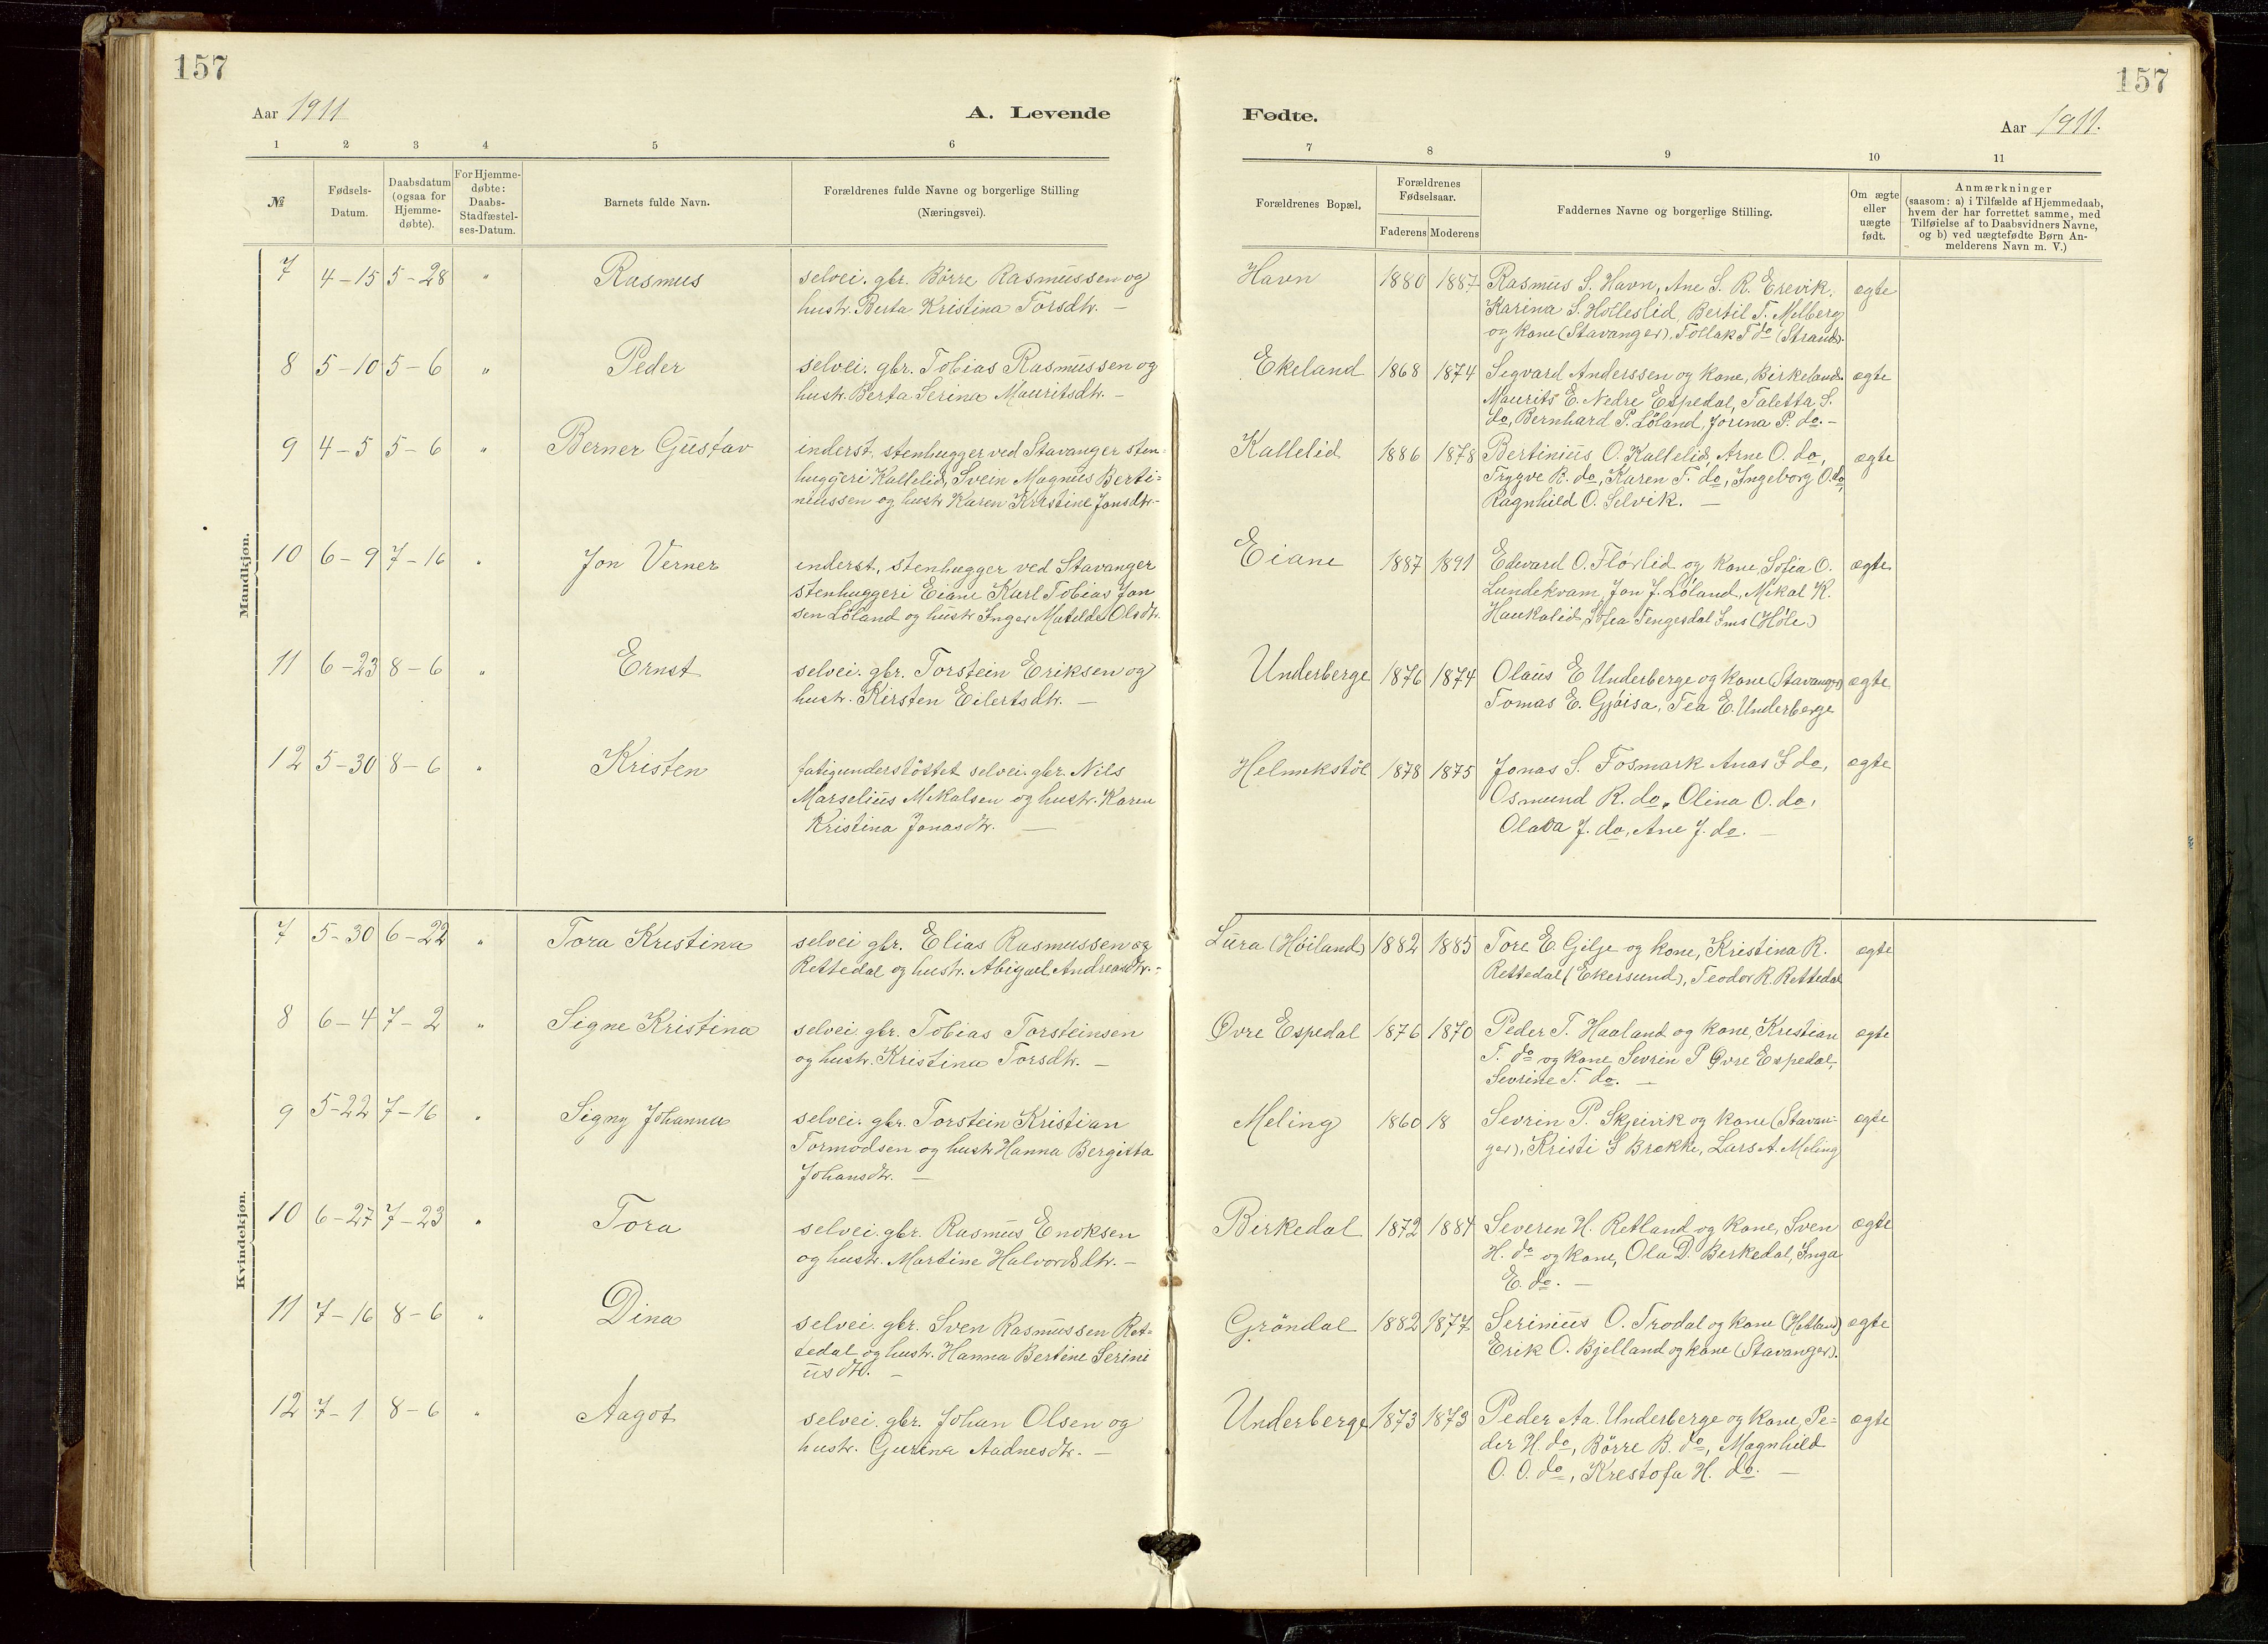 157
157
Aar 1911
A. Levende
Fødte.
Aar 1911.
1 2 3 4 5 6
7 8 9 10 11
№
Fødsels-Datum.
Daabsdatum (ogsaa for Hjemme-døbte).
For Hjemme-døbte: Daabs-Stadfæstel-ses-Datum.
Barnets fulde Navn.
Forældrenes fulde Navne og borgerlige Stilling
(Næringsvei).
Forældrenes Bopæl.
Forældrenes Fødselsaar.
Faderens Moderens
Faddernes Navne og borgerlige Stilling.
Om ægte eller uægte født.
Anmærkninger
(saasom: a) i Tilfælde af Hjemmedaab,
hvem der har forrettet samme, med
Tilføielse af to Daabsvidners Navne,
og b) ved uægtefødte Børn An-
melderens Navn m. V.)
Mandkjøn.
7 4-15 5-28 " Rasmus selvei. gbr. Börre Rasmussen og
hustr. Berta Kristina Torsdtr. —
Havn 1880 1887 Rasmus S. Havn, Ane S. R. Erevik, ægte
Karina S. Holleslid, Bertil T. Melberg
og kone (Stavanger), Tollak T do (Strand).
8 5-10 5-6 " Peder selvei. gbr. Tobias Rasmussen og
hustr. Berta Serina Mauritsdtr. —
Ekeland 1868 1874 Segvard Anderssen og kone, Birkeland. ægte
Maurits E. Nedre Espedal, Taletta S.
do, Bernhard P. Löland, Jorina P. do. —
9 4-5 5-6 " Berner Gustav inderst, stenhugger ved Stavanger sten-
huggeri Kallelid, Svein Magnus Berti-
niussen og hustr Karen Kristine Jonsdtr.
Kallelid 1886 1878 Bertinius O. Kallelid, Arne O. do, ægte
Trygve R. do, Karen T. do, Ingeborg O. do,
Ragnhild O. Selvik. —
10 6-9 7-16 " Jon Verner inderst, stenhugger ved Stavanger
stenhuggeri Eiane Karl Tobias Jon
sen Löland og hustr Inger Matilde Olsdtr.
Eiane 1887 1891 Edvard O. Flørlid og kone, Sofia O. ægte
Lundekvam, Jon J. Löland, Mikal K.
Haukalid, Tengesdal Ims (Høle)
11 6-23 8-6 " Ernst selvei. gbr. Torstein Eriksen og
hustr. Kirsten Eilertsdtr. —
Underberge 1876 1874 Olaus E Underberge og kone (Stavanger) ægte
Tomas E. Gjöisa, Tea E. Underberge
12 5-30 8-6 " Kristen fatigunderstöttet selvei. gbr. Nils
Marselius Mikalsen og hustr. Karen
Kristina Jonasdtr. —
Helmekstöl 1878 1875 Jonas S. Fosmark Anas J do, ægte
Osmund R. do, Olina O. do,
Olava J. do, Ane J. do. —
Kvindekjøn.
7 5-30 6-22 " Tora Kristina selvei gbr. Elias Rasmussen og
Rettedal og hustr. Abigael Andreasdtr. -
Lura (Höiland) 1882 1885 Tore E Gilje og kone, Kristina R. ægte
Rettedal (Ekersund), Teodor R. Rettedal
8 6-4 7-2 " Signe Kristina selvei gbr. Tobias Torsteinsen
og hustr. Kristina Torsdtr. —
Øvre Espedal 1876 1870 Peder T. Haaland og kone, Kristian ægte
T. do og kone Sevrin P Øvre Espedal,
Sevrine T. do. —
9 5-22 7-16 " Signy Johanna selvei. gbr. Torstein Kristian
Tormodsen og hustr Hanna Bergitta
Johansdtr. —
Meling 1860 18 Sevrin P. Skjeivik og kone (Stavan- ægte
ger), Kristi S Brekke, Lars A. Meling
10 6-27 7-23 " Tora selvei. gbr. Rasmus Enoksen
og hustr. Martine Halvorsdtr. —
Birkedal 1872 1884 Severin H. Retland og kone, Sven ægte
H. do og kone, Ola D. Birkedal, Inga
E. do. —
11 7-16 8-6 " Dina selvei. gbr. Sven Rasmussen Ret-
tedal og hustr. Hanna Bertine Serini
usdtr. —
Gröndal 1882 1877 Serinius O. Trodal og kone (Hetland) ægte
Erik O. Bjelland og kone (Stavanger).
12 7-1 8-6 " Aagot selvei. gbr. Johan Olsen og
hustr. Gurina Aadnesdtr. —
Underberge 1873 1873 Peder Aa. Underberge og kone, Pe- ægte
der H. do, Börre B. do, Magnhild
O. O. do, Kristofa H. do. —